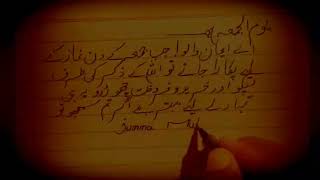 یوم الجمعہ
اے ایمان والو! جب جمعے کے دن نماز کے
لیے پکارا جائے تو اللہ کے ذکر کی طرف
لپکو اور خرید و فروخت چھوڑ دو یہ ہی
تمہارے لیے بہتر ہے اگر تم سمجھو تو
Jumma